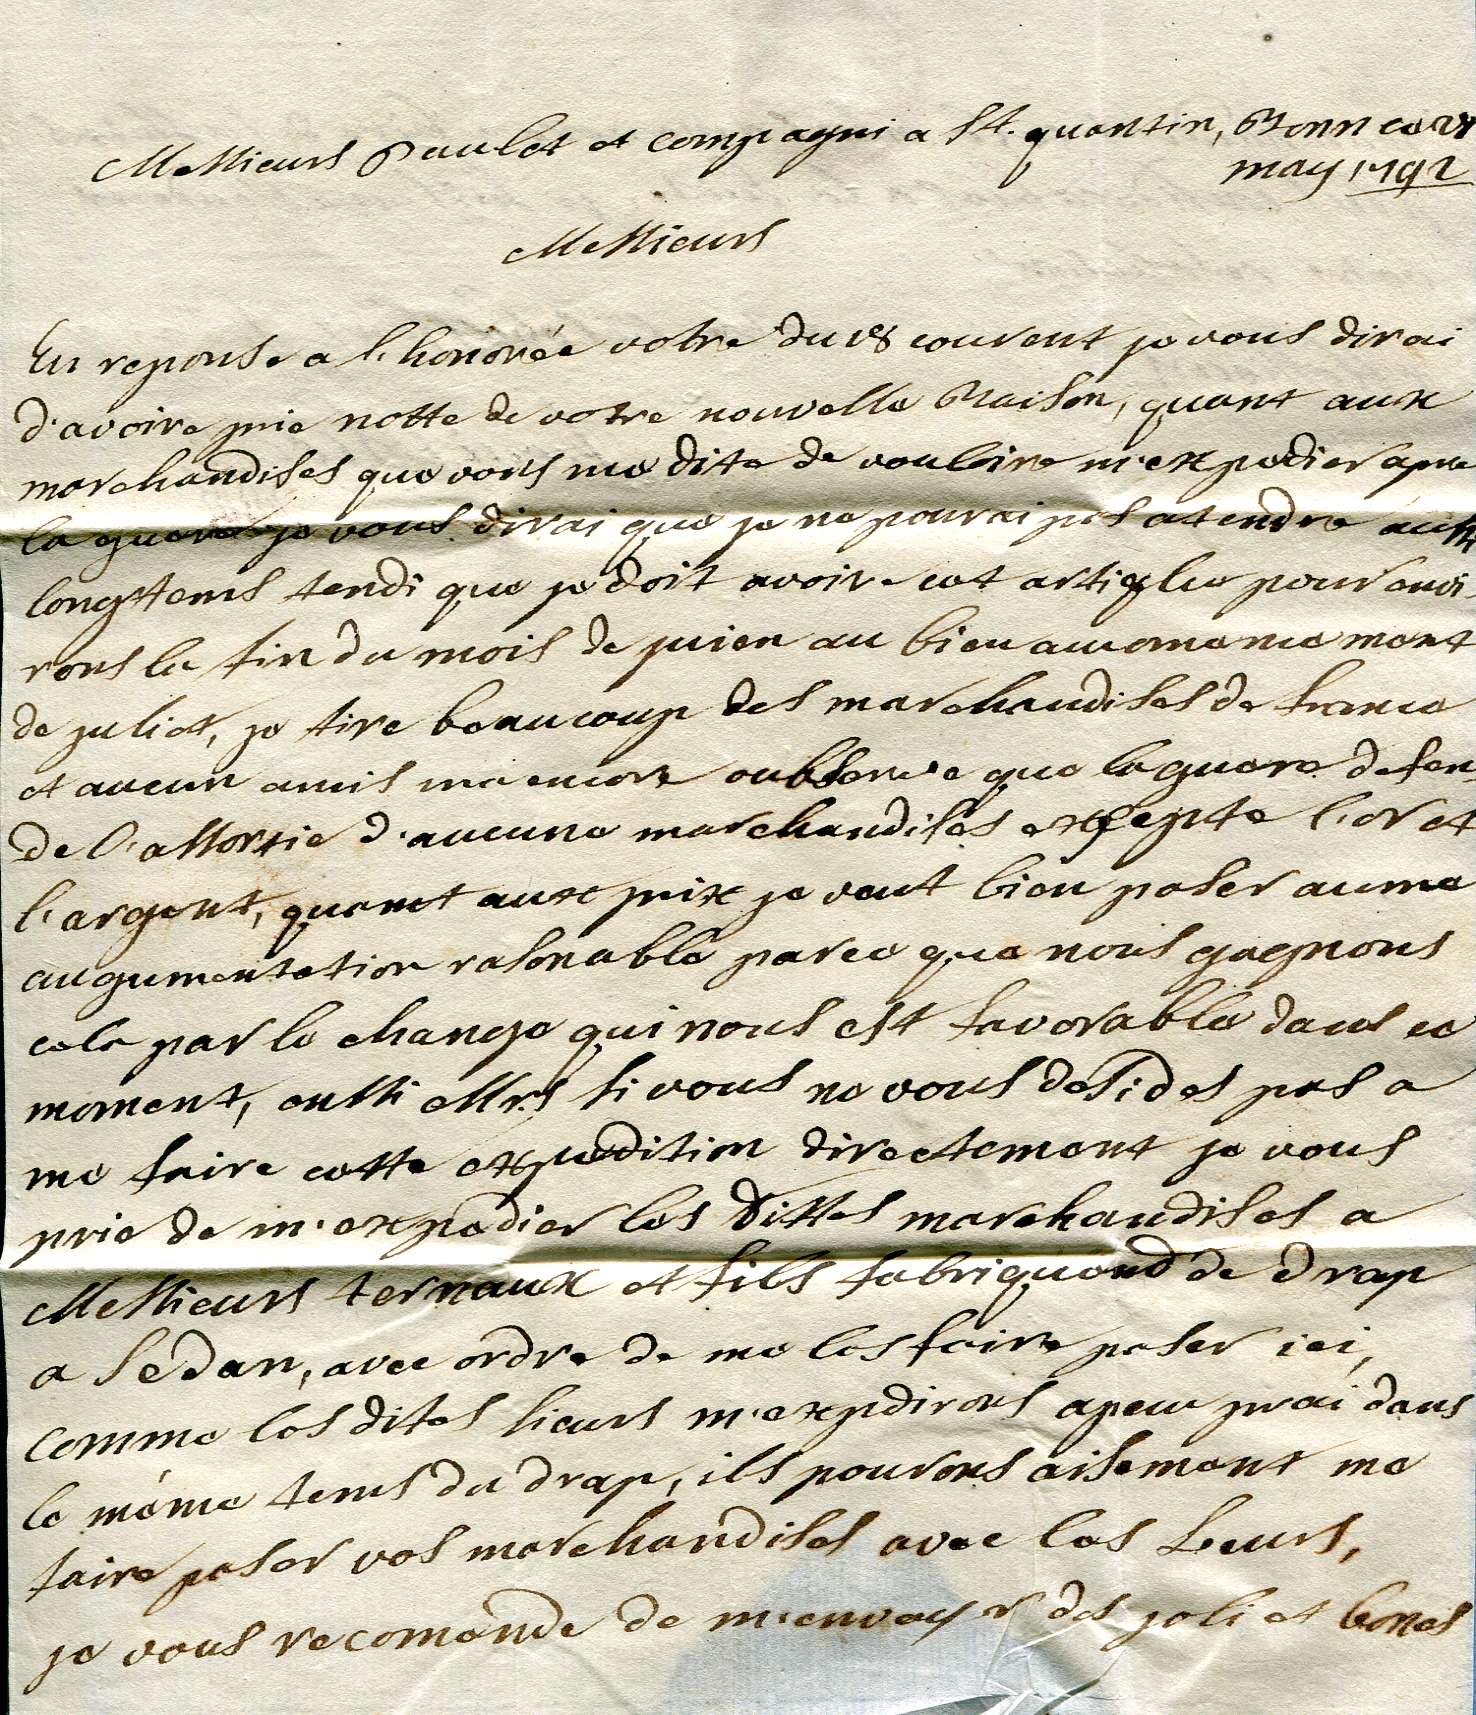 Messieurs Paulet et compagni a St. quantin, Bonn ce
may 1792
Messieurs
En reponse a l'honorée votre du 18 courent je vous dirai
d'avoire prie notte de votre nouvelle Raison, quant aux
marchandises que vous me dite de vouloire m'expedier apre
la guere je vous dirai que je ne pourai pas atendre aussi
longttems tendi que je doit avoire cet artiqle pour envi-
rons la fin du mois de juien au bien au comencement
de juliet, je tire beaucoup des marchandises de france
et aucun amis ma encore oubserve que la guere defen-
de l'assortie d'aucune marchandises exsepte l'or et
l'argent, quant aux prix je veut bien paser a une
augumentation rasonable parce que nous gagnons
cela par le change qui nous est favorable dans ce
moment, aussi Mrs si vous ne vous desides pas a
me faire cette expedition directement je vous
prie de m'expedier les dittes marchandises a
Messieurs ternaux et fils fabriquand de drap
a Sedan, avec ordre de me les faire paser ici,
comme les dites sieurs m'expdirons apeu prai dans
le méme tems du drap, ils pourons aisement me
faire paser vos marchandises avec les Leurs,
je vous recomende de m'envoyer des joli et bones